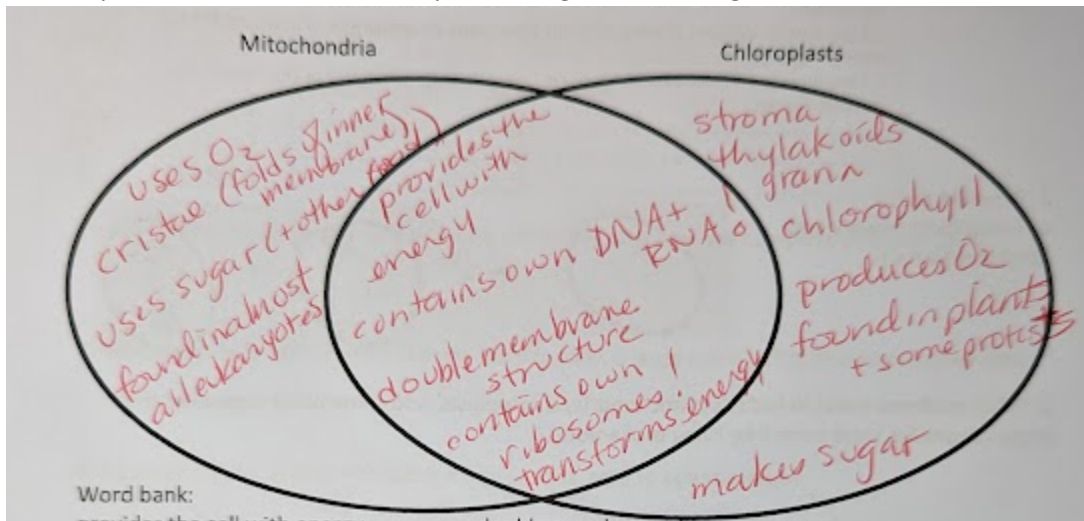 Mitochondria
Chloroplasts
uses O2
cristae (folds of inner
membrane)
uses sugar (+ other food)
found in almost
all eukaryotes
provides the
cell with
energy
contains own DNA +
RNA
double membrane
structure
contains own
ribosomes
transforms energy
stroma
thylakoids
grana
chlorophyll
produces O2
found in plants
+ some protists
makes sugar
Word bank: